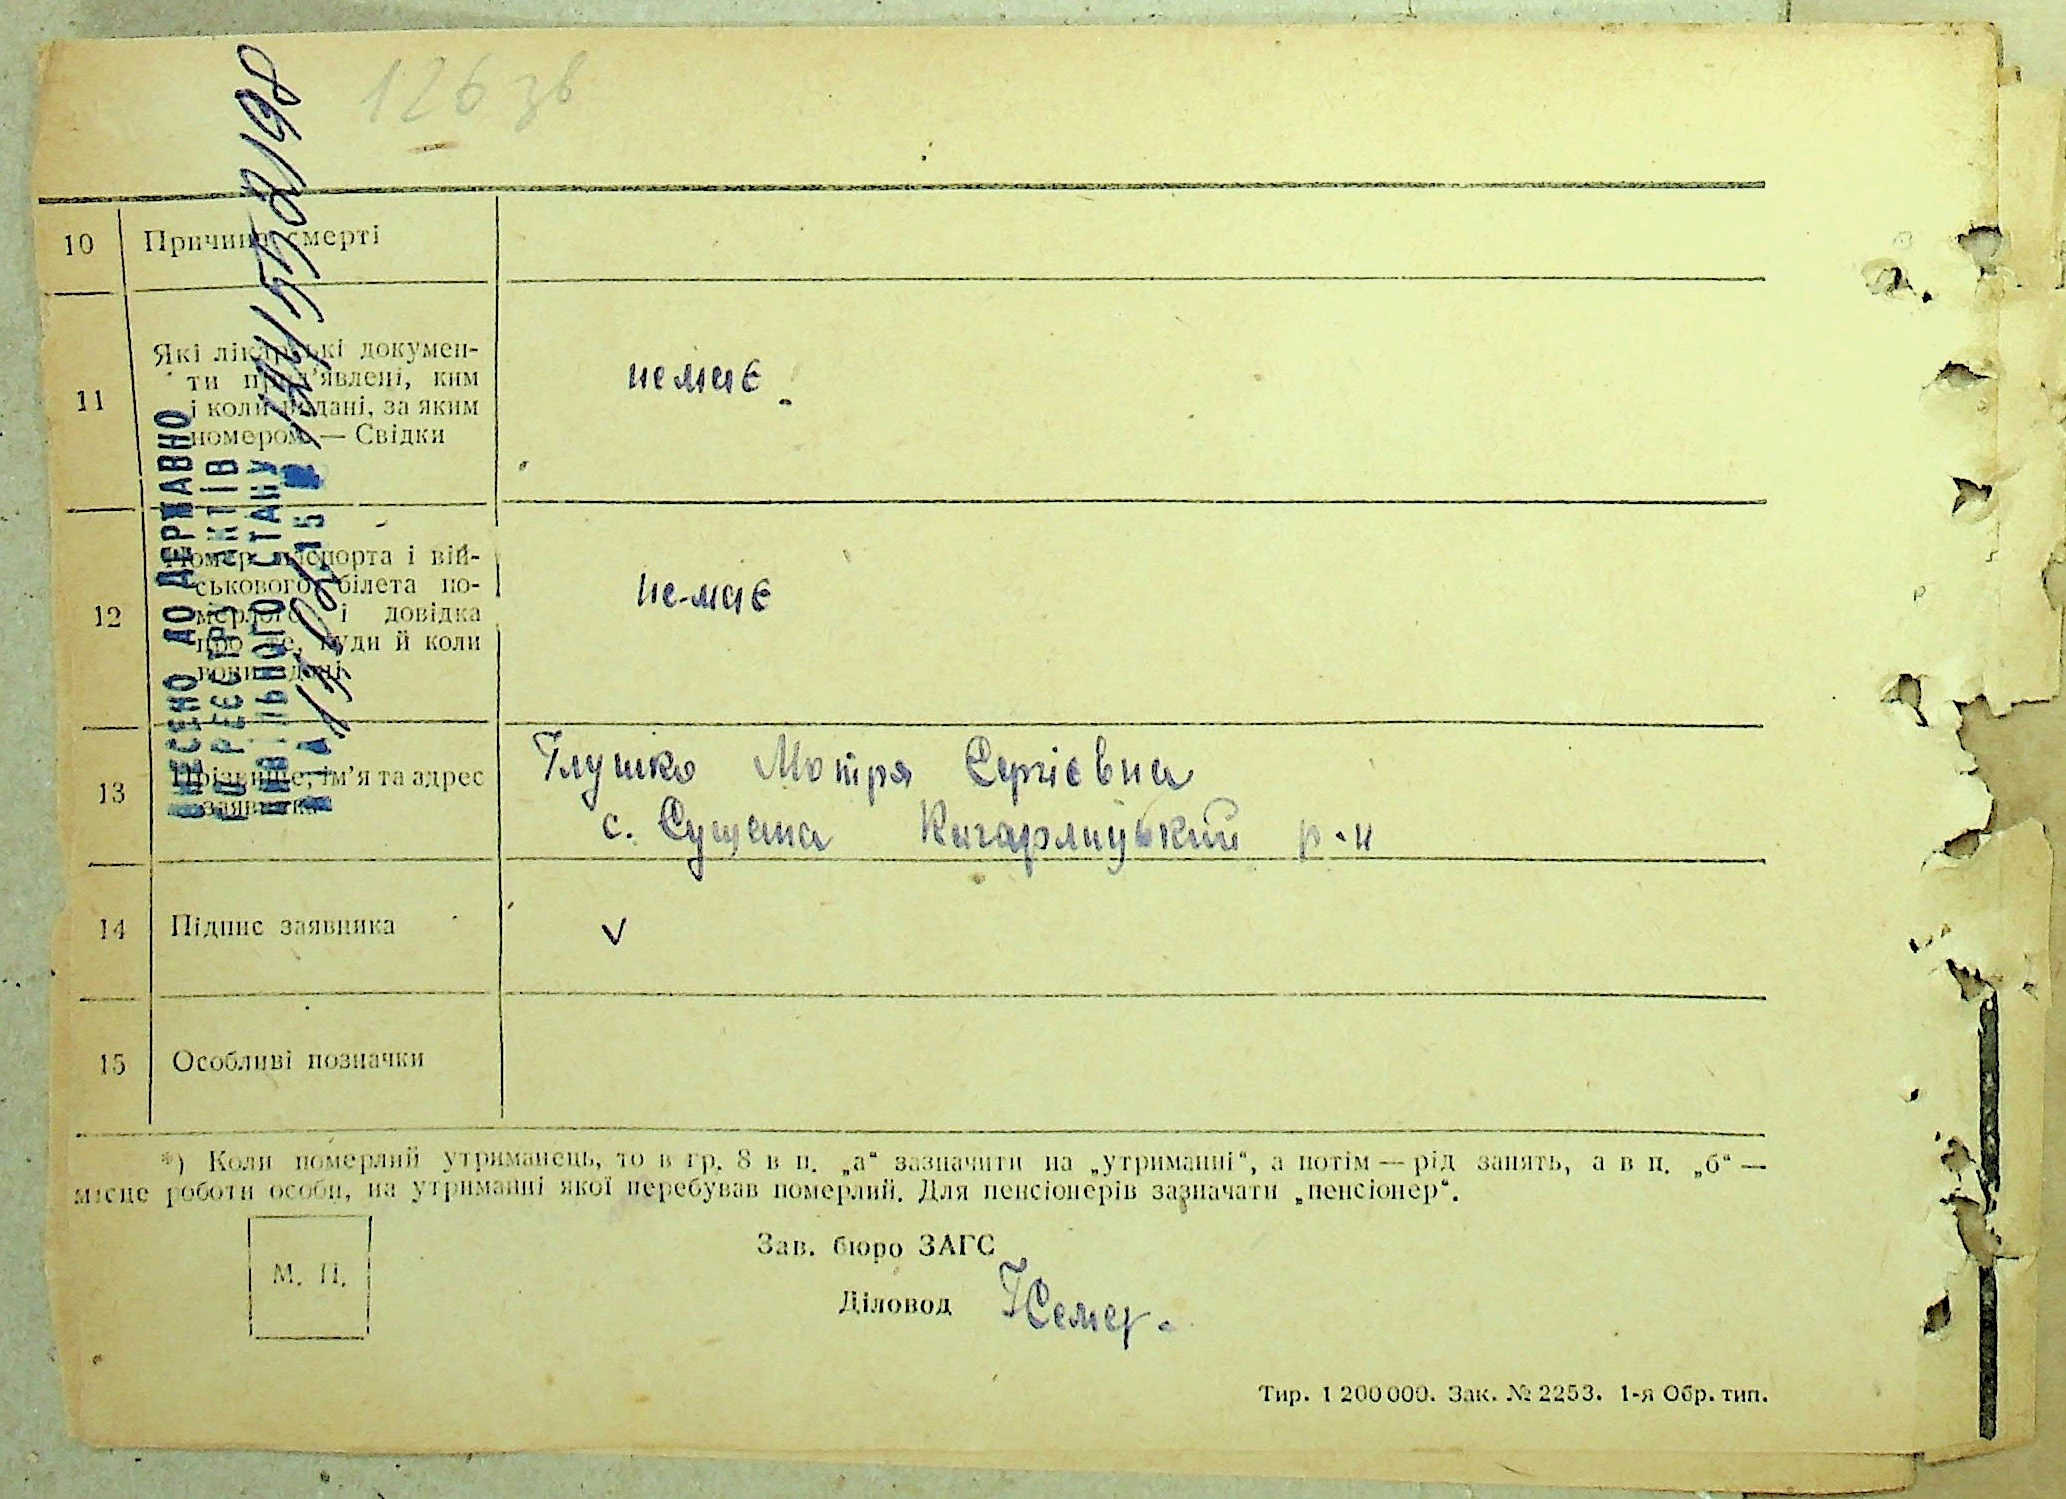 126 зв
10 Причина смерті
11 Які лікарські докумен-
ти пред'явлені, ким
і коли видані, за яким
номером — Свідки
немає.
12 Номер паспорта і вій-
ськового білета по-
мерлого і довідка
про те, куди й коли
вони здані
немає
13 Прізвище, ім'я та адрес
заявника
Глушко Мотря Сергієвна
с. Сущана Кагарлицький р-н
14 Підпис заявника
V
15 Особливі позначки
*) Коли померлий утриманець, то в гр. 8 в п. „а“ зазначити на „утриманні“, а потім — рід занять, а в п. „б“ —
місце роботи особи, на утриманні якої перебував померлий. Для пенсіонерів зазначати „пенсіонер“.
М. П.
Зав. бюро ЗАГС
Діловод
Тир. 1 200 000. Зак. № 2253. 1-я Обр. тип.
ВНЕСЕНО ДО ДЕРЖАВНО
РЕЄСТР АКТІВ
ЦИВІЛЬНОГО СТАНУ